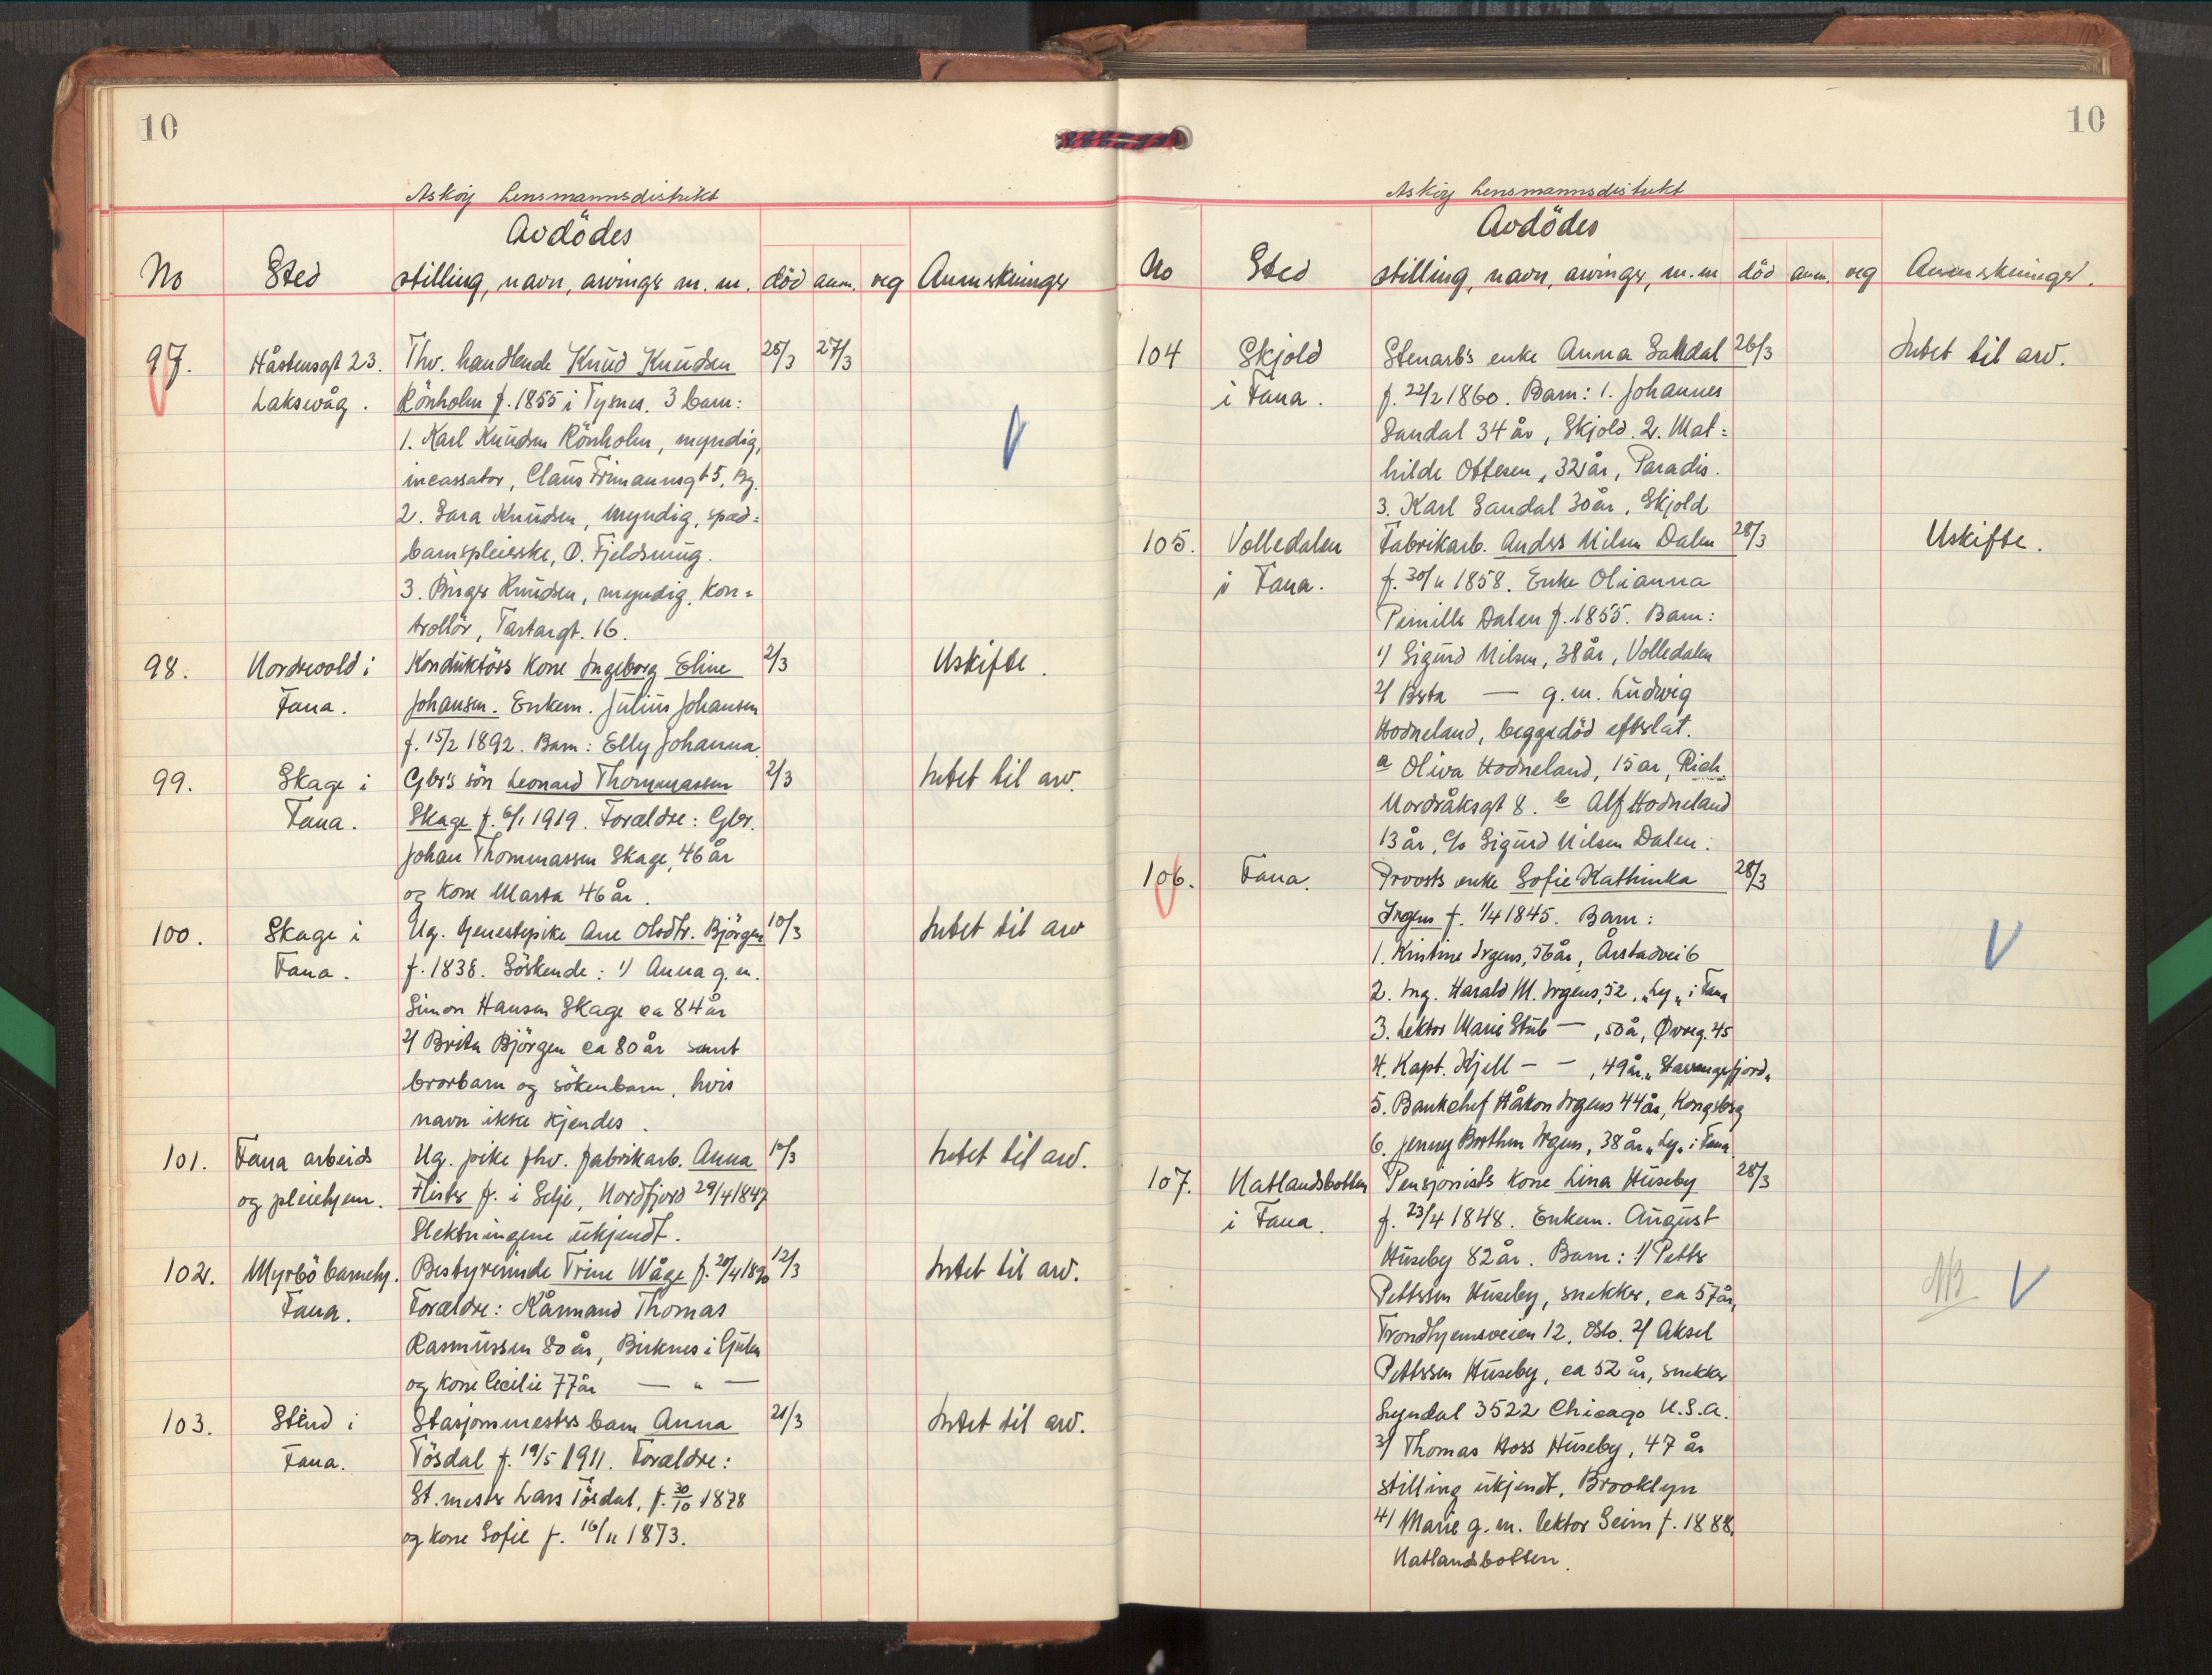 10
Askøy Lensmannsdistrikt
Avdödes
No Sted stilling, navn, arvinger m. m. död anm. reg Anmerkninger
97. Håstensgt 23. Thv. handlende Knud Knudsen 25/3 27/3
Laksevåg. Rönholm f. 1855 i Tysnes. 3 barn:
1. Karl Knudsen Rönholm, myndig,
incassator, Claus Frimannsgt 5, Bg.
2. Sara Knudsen, myndig, spæd=
barnspleierske, Ø. Fjeldsmug.
3. Birger Knudsen, myndig, kon=
trollör, Tartargt. 16.
98. Nordrevold i Konduktörs kone Ingeborg Eline 2/3 Uskifte.
Fana. Johansen. Enkem. Julius Johansen
f. 15/2 1892. Barn: Elly Johanna
99. Skage i Gbr's sön Leonard Thommassen 2/3 Intet til arv.
Fana. Skage f. 6/1 1919. Forældre: Gbr.
Johan Thommassen Skage, 46 år
og kone Marta 46 år.
100. Skage i Ug. tjenestepike Ane Olsdtr. Björgen 10/3 Intet til arv
Fana. f. 1838. Söskende: 1) Anna g. m.
Simon Hansen Skage ca 84 år
2) Brita Björgen ca 80 år samt
brorbarn og sökenbarn, hvis
navn ikke kjendes.
101. Fana arbeids Ug. pike fhv. fabrikarb. Anna 10/3 Intet til arv.
og pleiehjem. Flister f. i Selje, Nordfjord 29/4 1847
Slektningene ukjendt.
102. Myrbö barnehj. Bestyrerinde Trine Wåge f. 20/4 1890 12/3 Intet til arv.
Fana. Forældre: Kårmand Thomas
Rasmussen 80 år, Birknes i Gulen
og kone Cecilie 77 år — " —
103. Stend i Stasjonmesters barn Anna 21/3 Intet til arv.
Fana. Tösdal f. 19/5 1911. Forældre:
St. mester Lars Tösdal, f. 30/10 1878
og kone Sofie f. 16/11 1873.
10
Askøy Lensmannsdistrikt
Avdödes
No Sted stilling, navn, arvinger, m. m död anm. reg Anmerkninger.
104 Skjold Stenarb's enke Anna Sandal 26/3 Intet til arv.
i Fana. f. 22/2 1860. Barn: 1. Johannes
Sandal 34 år, Skjold. 2. Mat=
hilde Ottesen, 32 år, Paradis.
3. Karl Sandal 30 år, Skjold
105. Volledalen Fabrikarb. Anders Nilsen Dalen 28/3 Uskifte.
i Fana. f. 30/11 1858. Enke Olianna
Pernille Dalen f. 1855. Barn:
1) Sigurd Nilsen, 38 år, Volledalen
2) Berta — g. m. Ludvig
Hodneland, begge död efterlat.
a Oliva Hodneland, 15 år, Rich.
Nordråksgt 8. b Alf Hodneland
13 år, c/o Sigurd Nilsen Dalen.
106. Fana. Provsts enke Sofie Kathinka 28/3
Irgens f. 1/4 1845. Barn:
1. Kristine Irgens, 56 år, Årstadvei 6
2. Ing. Harald M. Irgens, 52, "Ly" i Fana
3. Lektor Marie Stub —, 50 å, Øvreg. 45
4. Kapt. Kjell — —, 49 år, "Stavangerfjord"
5. Bankchef Håkon Irgens 44 år, Kongsberg
6. Jenny Irgens, 38 år, "Ly" i Fana
107. Natlandsbotten Pensjonists kone Lina Huseby 28/3
i Fana. f. 23/4 1848. Enkem. August
Huseby 82 år. Barn: 1) Petter
Pettersen Huseby, snekker, ca 57 år, NB
Trondhjemsveien 12, Oslo. 2) Aksel
Pettersen Huseby, ca 52 år, snekker
Lyndal 3522 Chicago U.S.A.
3) Thomas Hoss Huseby, 47 år
stilling ukjendt, Brooklyn
4) Marie g. m. lektor Seim f. 1888,
Natlandsbotten.